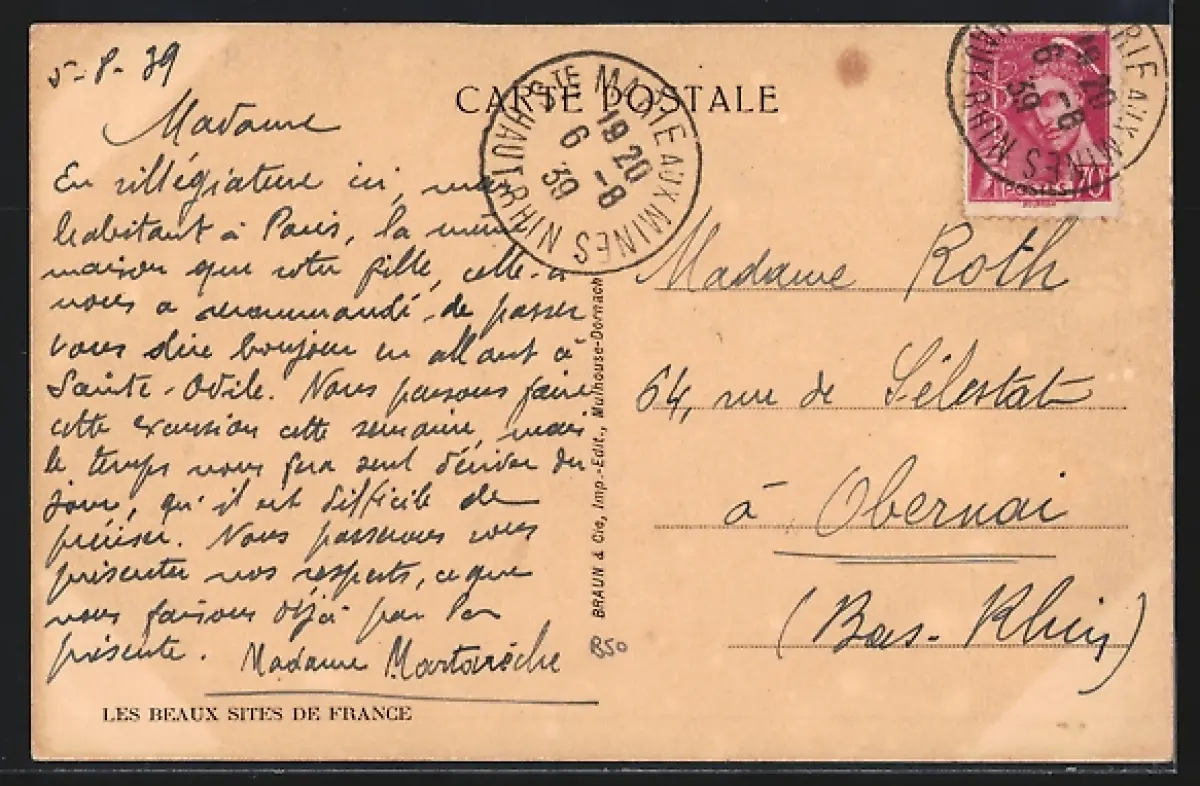 5-8-39
CARTE POSTALE
STE MARIE AUX MINES
HAUT-RHIN
19 20
6 -8
39
STE MARIE AUX MINES
HAUT-RHIN
19 20
6 -8
39
POSTES 70
Madame
En villégiature ici, mais
habitant à Paris, la même
maison que votre fille, celle-ci
nous a recommandé de passer
vous dire bonjour en allant à
Sainte-Odile. Nous pensons faire
cette excursion cette semaine, mais
le temps nous fera seul décider du
jour, qu'il est difficile de
préciser. Nous passerons vous
présenter nos respects, ce que
nous faisons déjà par la
présente. Madame Martarèche
Madame Roth
64, rue de Sélestat
à Obernai
(Bas-Rhin)
BRAUN & Cie, Imp.-Edit., Mulhouse-Dornach
B50
LES BEAUX SITES DE FRANCE